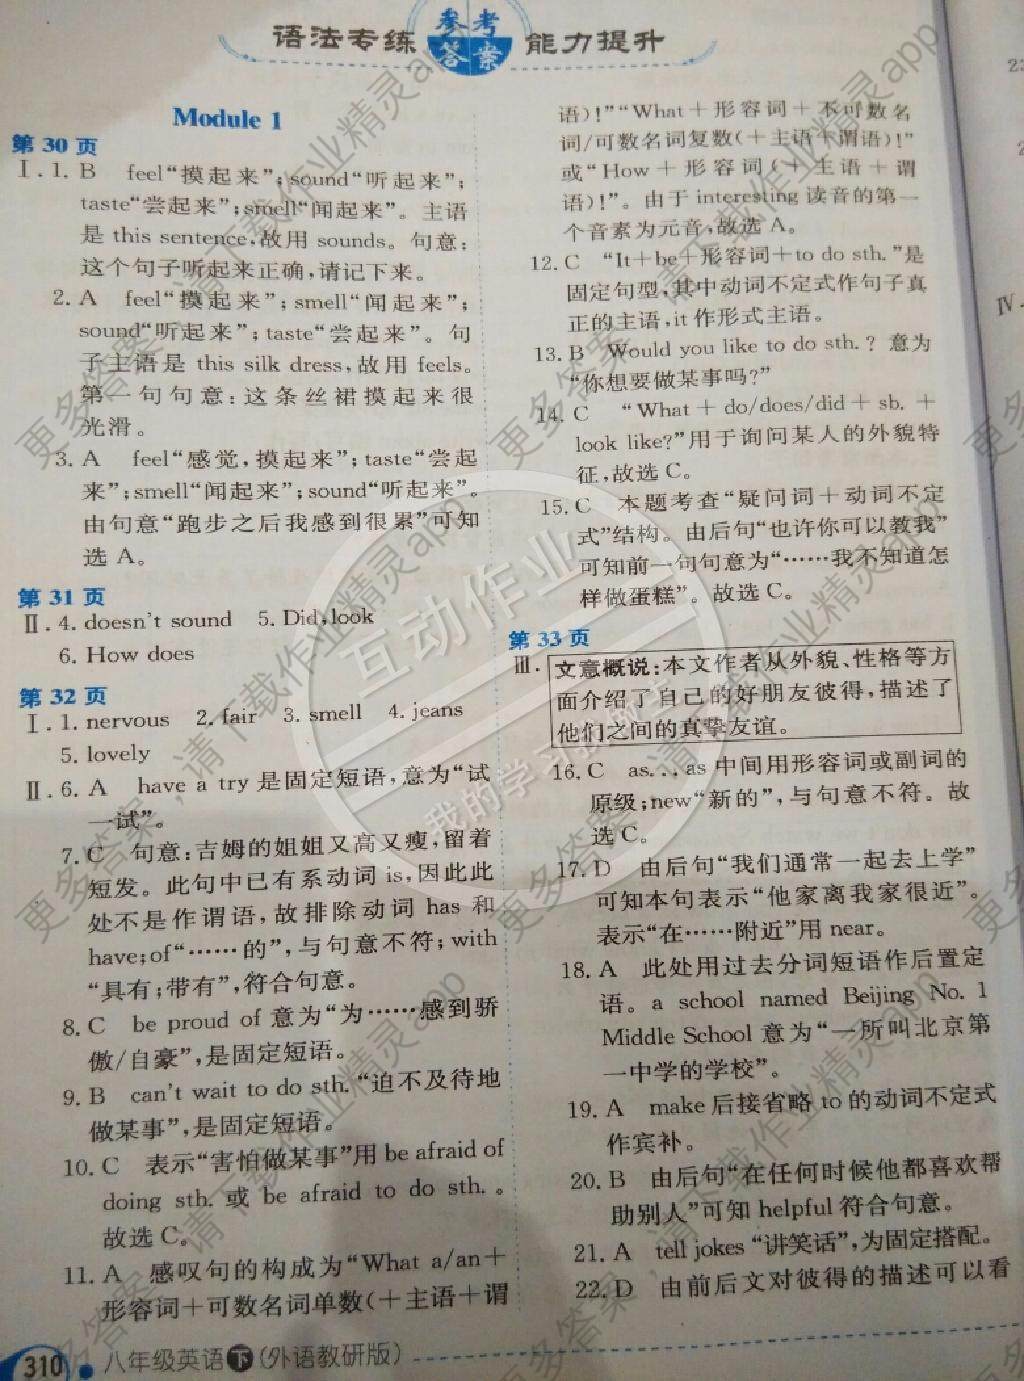 语法专练 参考答案 能力提升
Module 1
第 30 页
Ⅰ. 1. B feel“摸起来”；sound“听起来”；
taste“尝起来”；smell“闻起来”。主语
是 this sentence，故用 sounds。句意：
这个句子听起来正确，请记下来。
2. A feel“摸起来”；smell“闻起来”；
sound“听起来”；taste“尝起来”。句
子主语是 this silk dress，故用 feels。
第一句句意：这条丝裙摸起来很
光滑。
3. A feel“感觉，摸起来”；taste“尝起
来”；smell“闻起来”；sound“听起来”。
由句意“跑步之后我感到很累”可知
选 A。
第 31 页
Ⅱ. 4. doesn't sound 5. Did，look
6. How does
第 32 页
Ⅰ. 1. nervous 2. fair 3. smell 4. jeans
5. lovely
Ⅱ. 6. A have a try 是固定短语，意为“试
一试”。
7. C 句意：吉姆的姐姐又高又瘦，留着
短发。此句中已有系动词 is，因此此
处不是作谓语，故排除动词 has 和
have；of“……的”，与句意不符；with
“具有；带有”，符合句意。
8. C be proud of 意为“为……感到骄
傲/自豪”，是固定短语。
9. B can't wait to do sth. “迫不及待地
做某事”，是固定短语。
10. C 表示“害怕做某事”用 be afraid of
doing sth. 或 be afraid to do sth. 。
故选 C。
11. A 感叹句的构成为“What a/an＋
形容词＋可数名词单数(＋主语＋谓
语)！”“What＋形容词＋不可数名
词/可数名词复数(＋主语＋谓语)！”
或“How＋形容词(＋主语＋谓
语)！”。由于 interesting 读音的第一
个音素为元音，故选 A。
12. C “It＋be＋形容词＋to do sth. ”是
固定句型，其中动词不定式作句子真
正的主语，it 作形式主语。
13. B Would you like to do sth. ？意为
“你想要做某事吗？”
14. C “What＋do/does/did＋sb. ＋
look like?”用于询问某人的外貌特
征，故选 C。
15. C 本题考查“疑问词＋动词不定
式”结构。由后句“也许你可以教我”
可知前一句句意为“……我不知道怎
样做蛋糕”。故选 C。
第 33 页
Ⅲ. 文意概说：本文作者从外貌、性格等方
面介绍了自己的好朋友彼得，描述了
他们之间的真挚友谊。
16. C as...as 中间用形容词或副词的
原级；new“新的”，与句意不符。故
选 C。
17. D 由后句“我们通常一起去上学”
可知本句表示“他家离我家很近”。
表示“在……附近”用 near。
18. A 此处用过去分词短语作后置定
语。a school named Beijing No. 1
Middle School 意为“一所叫北京第
一中学的学校”。
19. A make 后接省略 to 的动词不定式
作宾补。
20. B 由后句“在任何时候他都喜欢帮
助别人”可知 helpful 符合句意。
21. A tell jokes “讲笑话”，为固定搭配。
22. D 由前后文对彼得的描述可以看
Ⅳ.
310 八年级英语下(外语教研版)
更多答案，请下载作业精灵app
更多答案，请下载作业精灵app
更多答案，请下载作业精灵app
更多答案，请下载作业精灵app
互动作业